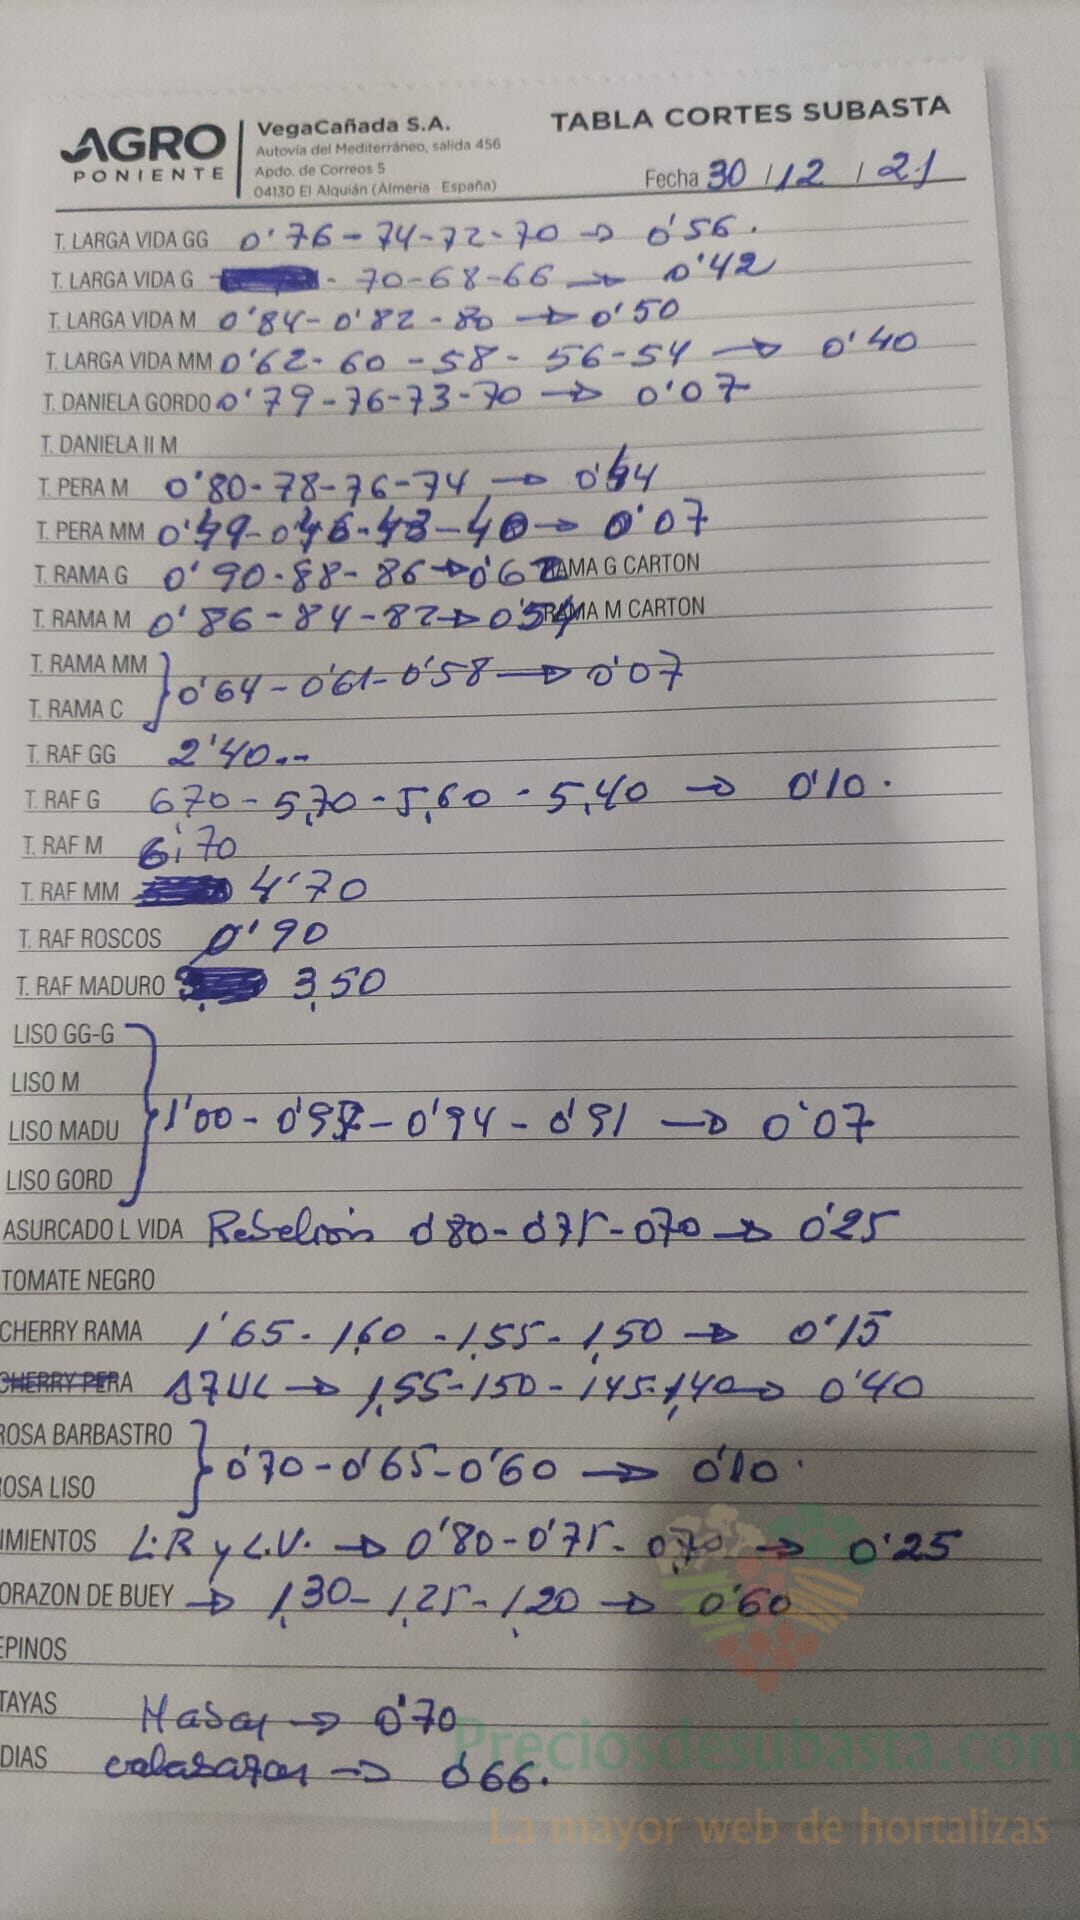 AGRO
PONIENTE
VegaCañada S.A.
Autovía del Mediterráneo, salida 456
Apdo. de Correos 5
04130 El Alquián (Almería - España)
TABLA CORTES SUBASTA
Fecha 30 / 12 / 21
T. LARGA VIDA GG 0'76-74-72-70 → 0'56.
T. LARGA VIDA G - 70-68-66 → 0'42
T. LARGA VIDA M 0'84-0'82-80 → 0'50
T. LARGA VIDA MM 0'62-60-58-56-54 → 0'40
T. DANIELA GORDO 0'79-76-73-70 → 0'07
T. DANIELA II M
T. PERA M 0'80-78-76-74 → 0'54
T. PERA MM 0'49-0'46-43-40 → 0'07
T. RAMA G 0'90-88-86 → 0'62 RAMA G CARTON
T. RAMA M 0'86-84-82 → 0'54 RAMA M CARTON
T. RAMA MM
T. RAMA C
0'64-0'61-0'58 → 0'07
T. RAF GG 2'40...
T. RAF G 6,70-5,70-5,60-5,40 → 0'10.
T. RAF M 6'70
T. RAF MM 4'70
T. RAF ROSCOS 0'90
T. RAF MADURO 3,50
LISO GG-G
LISO M
LISO MADU 1'00-0'97-0'94-0'91 → 0'07
LISO GORD
ASURCADO L VIDA Rebelión 0'80-0'75-070 → 0'25
TOMATE NEGRO
CHERRY RAMA 1'65-1,60-1,55-1,50 → 0'15
CHERRY PERA AZUL → 1,55-150-145-1,40 → 0'40
ROSA BARBASTRO
OSA LISO
0'70-0'65-0'60 → 0'10.
IMIENTOS L.R y L.V. → 0'80-0'75-0,70 → 0'25
ORAZON DE BUEY → 1,30-1,25-1,20 → 0'60
EPINOS
TAYAS → 0'70
DIAS → 0'66.
Preciosdesubasta.com
La mayor web de hortalizas